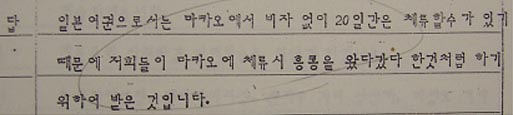 답 일본여권으로서는 마카오에서 비자 없이 20일간은 체류할수가 있기
때문에 저희들이 마카오에 체류시 홍콩을 왔다갔다 한것처럼 하기
위하여 받은 것입니다.